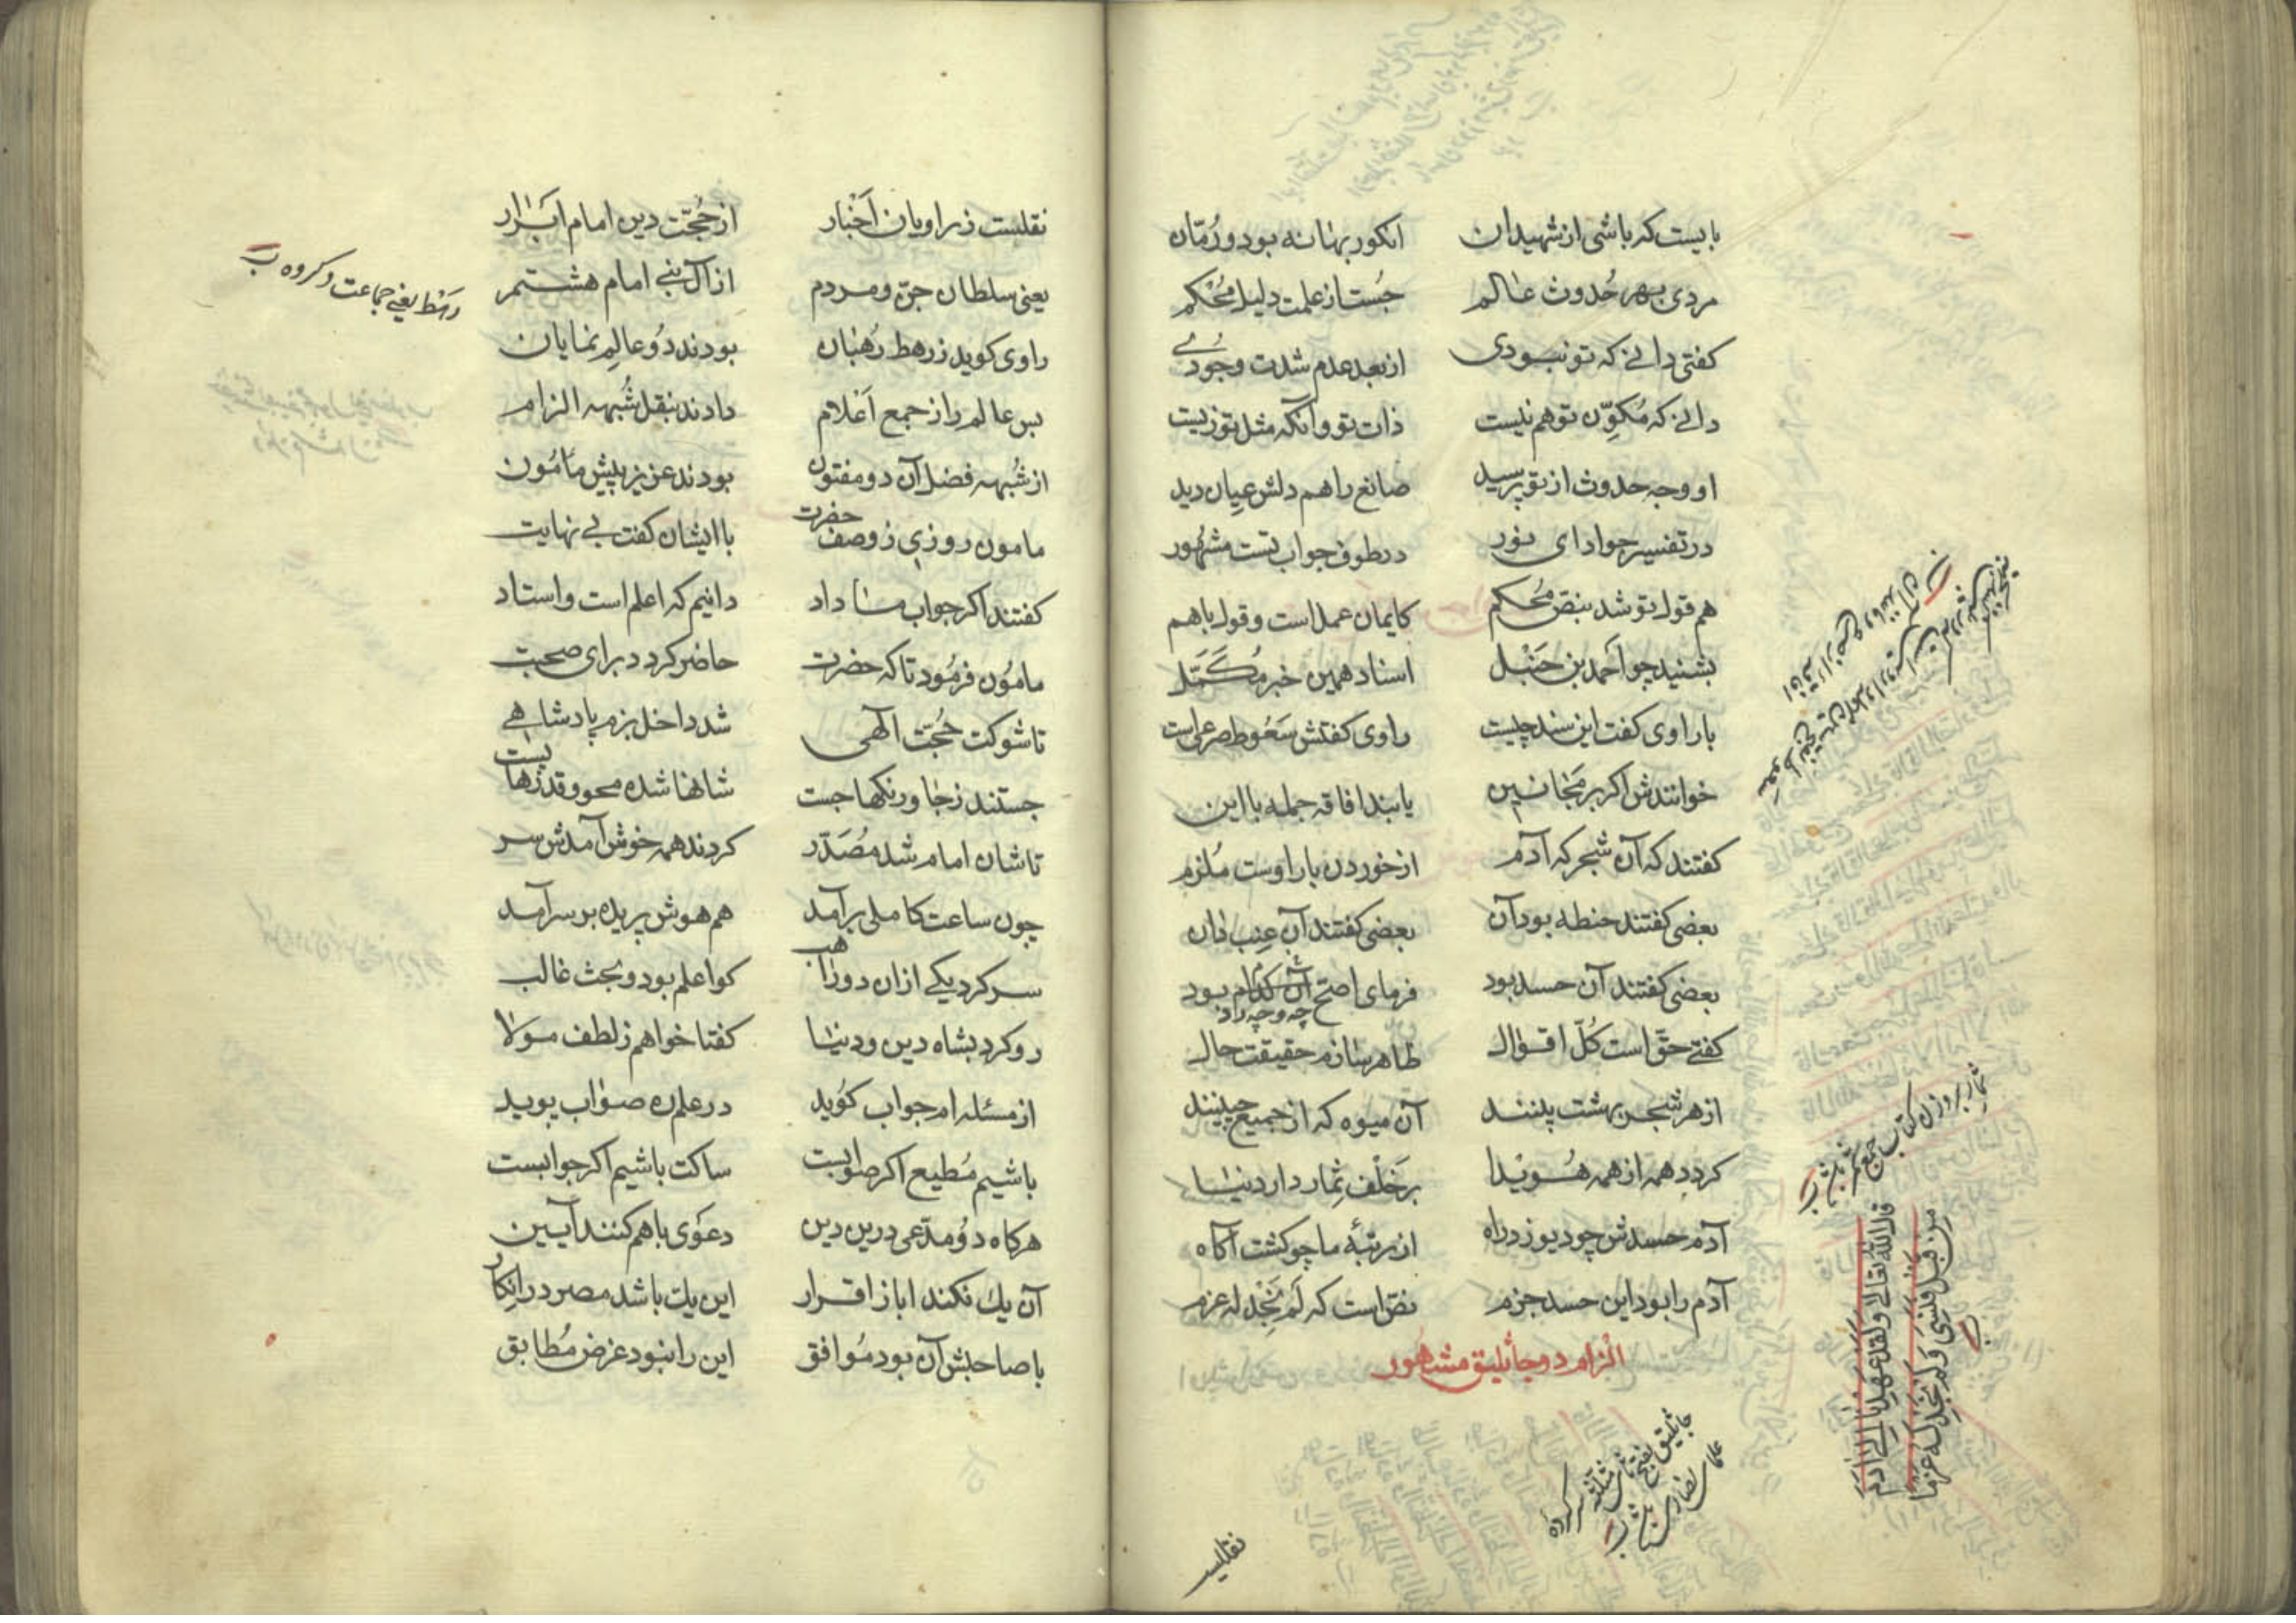 بایست که باشی از شهیدان انکور بهانه بود و رُمّان
مردی بهر حُدوث عالم جُست از علمت دلیل مُحْکم
کفتی دانے که تو نبودی از بعد عدم شدت وجودے
دانے که مُکوِّن تو هم نیست ذات تو و آنکه مثل تو زیست
او وجه حدوث از تو پرسید صانع را هم دلش عیان دید
در تفسیر جواد ای نور در طوف جواب تست مشهُور
هم قول تو شد بنصّ مُحکم کایمان عمل است و قول باهم
بشنید چو اَحمد بن حَنْبل اسناد همین خبر مُکَمَّل
با راوی کفت این سند چیست راوی کفتش سَعُوط صرعی است
خوانندش اکر بر مَجانین یابند افاقه جمله با این
کفتند که آن شجر که آدم از خوردن بار اوست مُلزم
بعضی کفتند حنطه بود آن بعضی کفتند آن عِنَب دان
بعضی کفتند آن حسد بود فرمای اصحّ آن کدام بود
چه وجه راد
کفتے حقّ است کُلّ اقوال ظاهر سازم حقیقت حال
از هر شجر بهشت بینند آن میوه که از جمیع چینند
کردد همه از همه هُویدا بر خَلْف ثِمار دار دنیا
آدم حسدش چو دیو زد راه از رتبهٔ ما چو کشت آکاه
آدم را بود این حسد جزم نصّ است که لَم نَجِد له عزم
الزام دو جاثلیق مشهُور
ثمار بروزن کتاب جمع ثمر باشد
قال اللّه تعالے ولَقَد عَهِدنا إلے آدَمَ
مِن قَبلُ فَنَسِیَ وَلَم نَجِد لَهُ عَزمًا
جاثلیق بفتح ثای مثلثه سرکرده
علمای نصاری باشد
نقلیست
نقلیست ز راویان اَخْبار از حُجّت دین امام اَبْرار
یعنی سلطان جنّ و مردم از آل نبے امام هشتم
راوی کوید ز رهط رُهْبان بودند دُو عالِم نمایان
بس عالم را ز جمع اَعْلام دادند بنقل شُبهه الزام
از شُبهه فضل آن دو مفتون بودند عزیز پیش مَامُون
مامون روزی ز وصف حضرت با ایشان کفت بے نهایت
کفتند اکر جواب ما داد دانیم که اعلم است و استاد
مامُون فرمُود تا که حضرت حاضر کردد برای صحبت
تا شوکت حُجّت آلهی شد داخل بزم پادشاهے
جستند ز جا و رنکها جست شانها شده محو و قدرها پست
تا شان امام شد مُصَدَّر کردند همه خوش آمدش سر
چون ساعت کاملی برآمد هم هوش پریده بر سر آمد
سر کرد یکے از آن دو راهب کو اعلم بود و بحث غالب
رو کرد بشاه دین و دنیا کفتا خواهم ز لطف مولا
از مسئله ام جواب کوید در علم ره صواب پوید
باشیم مُطیع اکر صوابست ساکت باشیم اکر جوابست
هرکاه دُو مدّعی درین دین دعوَی باهم کنند آیین
آن یك نکند ابا ز اقرار این یك باشد مصر در انکار
با صاحبش آن بود مُوافق این را نبود غرض مُطابق
رهط یعنے جماعت و کروه